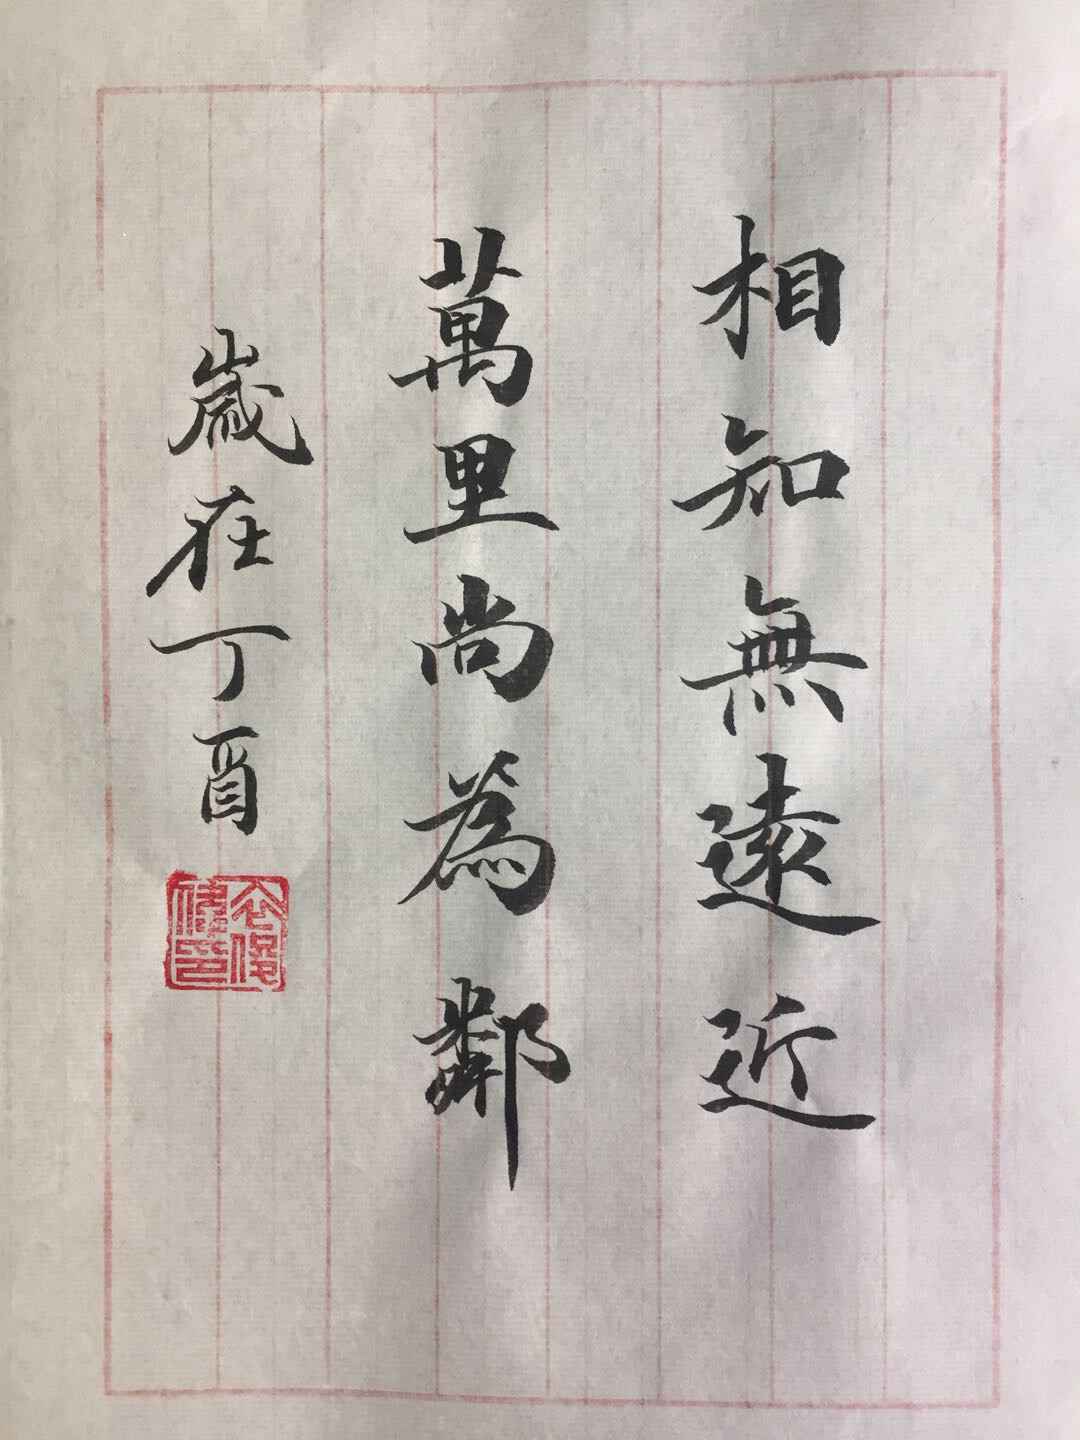 相知無遠近
萬里尚為鄰
歲在丁酉